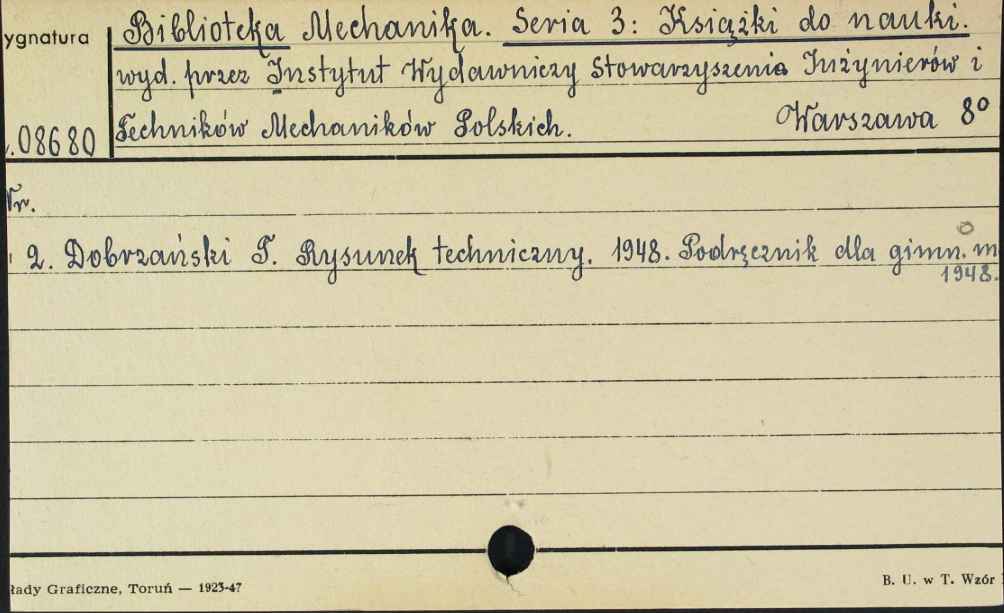 ygnatura
Biblioteka Mechanika. Seria 3: Książki do nauki.
wyd. przez Instytut Wydawniczy Stowarzyszenia Inżynierów i
.08680 Techników Mechaników Polskich. Warszawa 8°
Nr.
2. Dobrzański T. Rysunek techniczny. 1948. Podręcznik dla gimn. m
1948.
łady Graficzne, Toruń — 1923-47
B. U. w T. Wzór